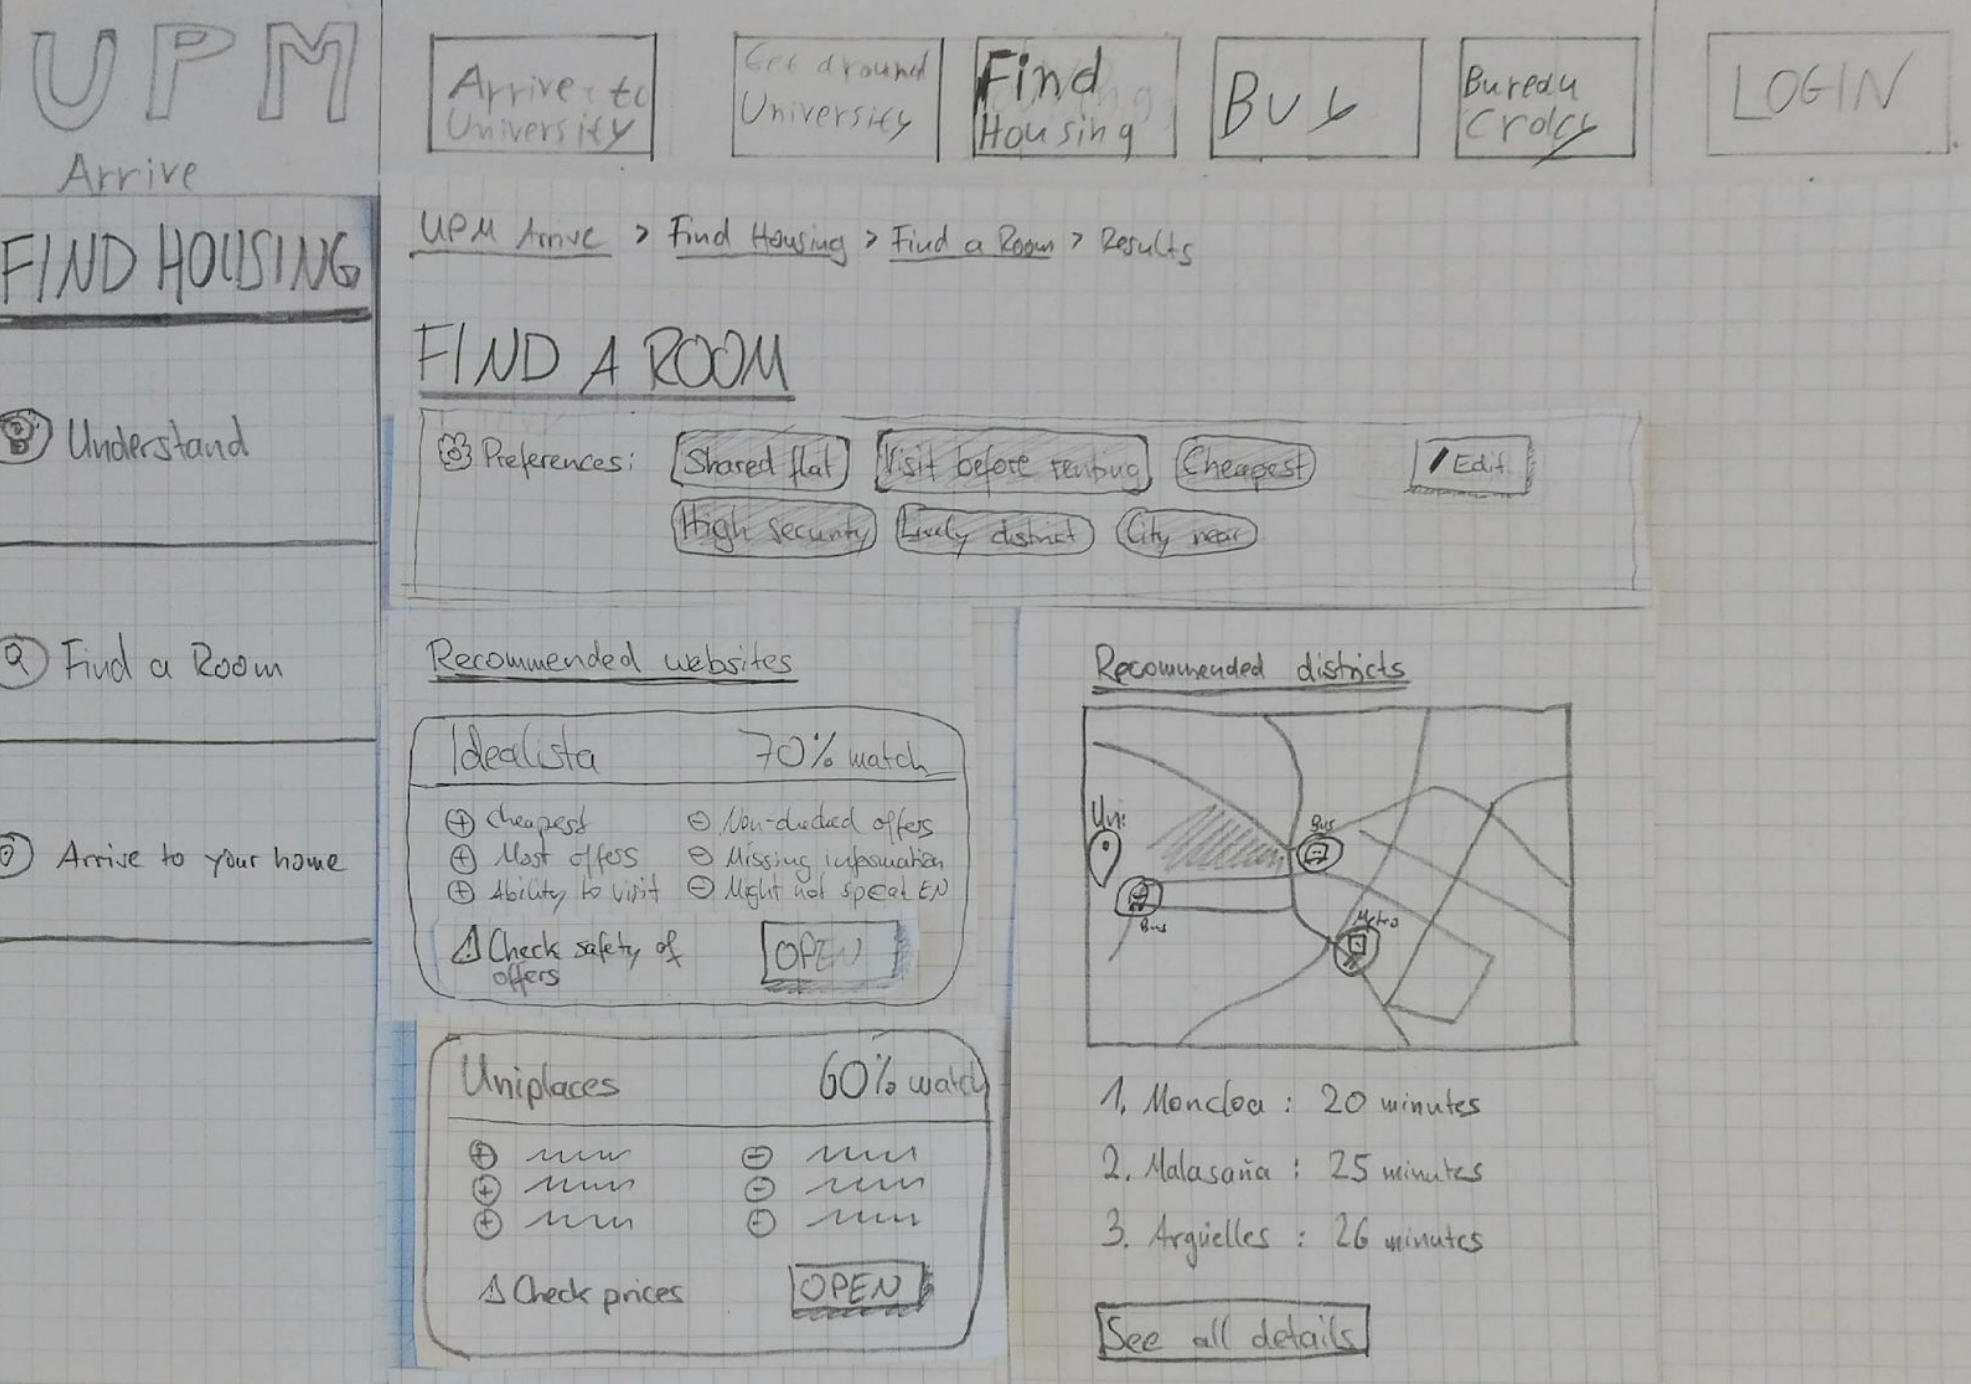 UPM
Arrive
Arrive to
University
Get around
University
Find
Housing
Buy
Bureau
Cracy
LOGIN
FIND HOUSING
Understand
Find a Room
Arrive to your home
UPM Arrive > Find Housing > Find a Room > Results
FIND A ROOM
Preferences: Shared flat Visit before renting Cheapest Edit
High security Lively district City near
Recommended websites
Idealista 70% match
+ Cheapest - Non-checked offers
+ Most offers - Missing information
+ Ability to visit - Might not speak EN
Check safety of
offers
OPEN
Uniplaces 60% match
Check prices OPEN
Recommended districts
Uni
Bus
Bus
Metro
1. Moncloa : 20 minutes
2. Malasaña : 25 minutes
3. Argüelles : 26 minutes
See all details